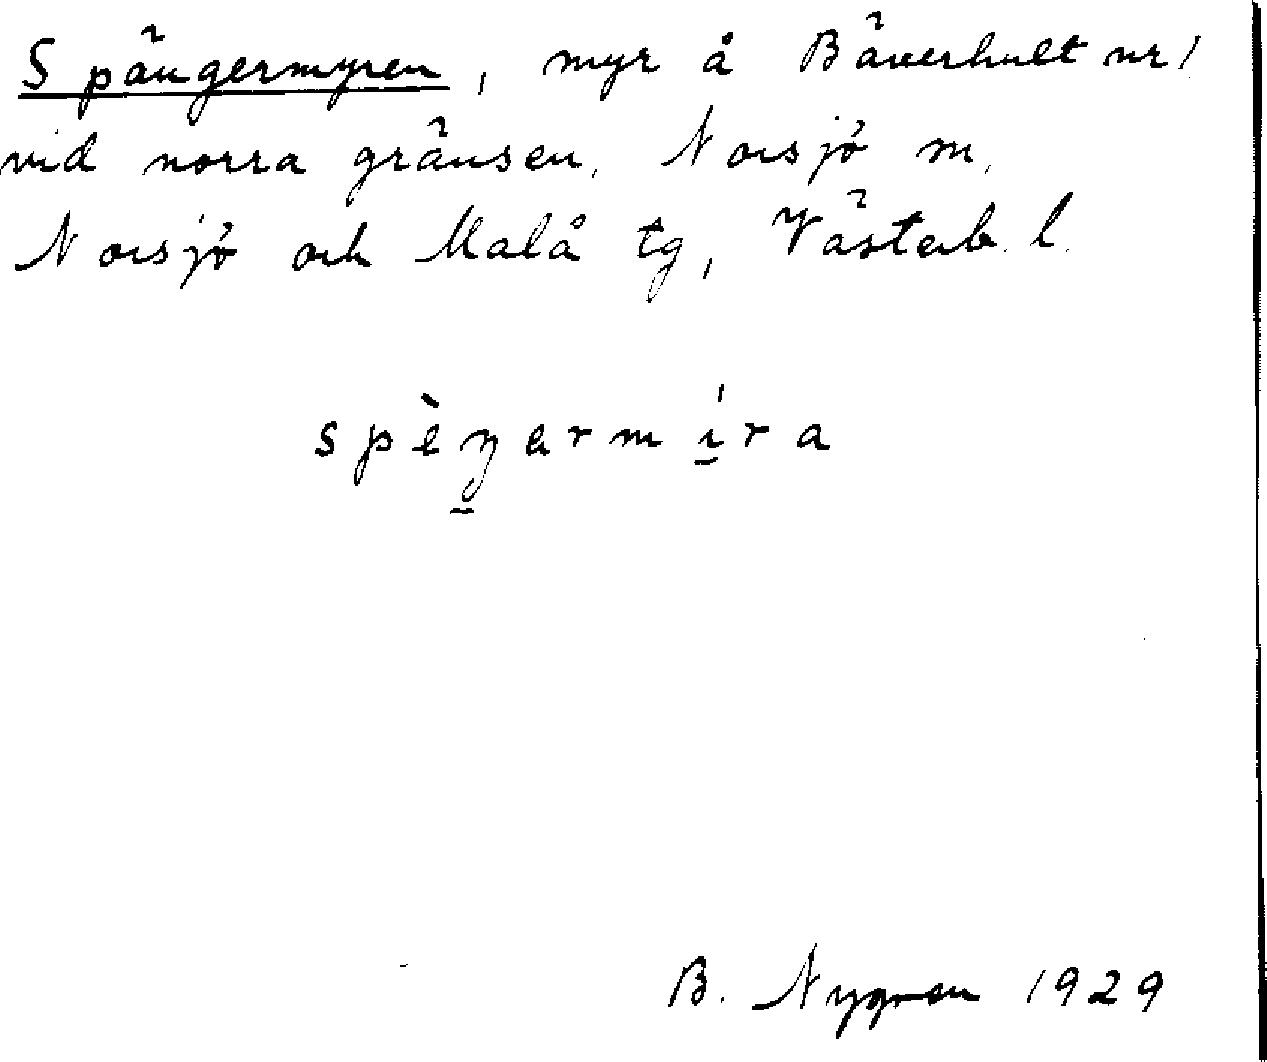 Spängermyren, myr å Bäverhult nr 1
vid norra gränsen, Norsjö m,
Norsjö och Malå tg, Västerb. l.
spèŋermíra
B. Nygren 1929